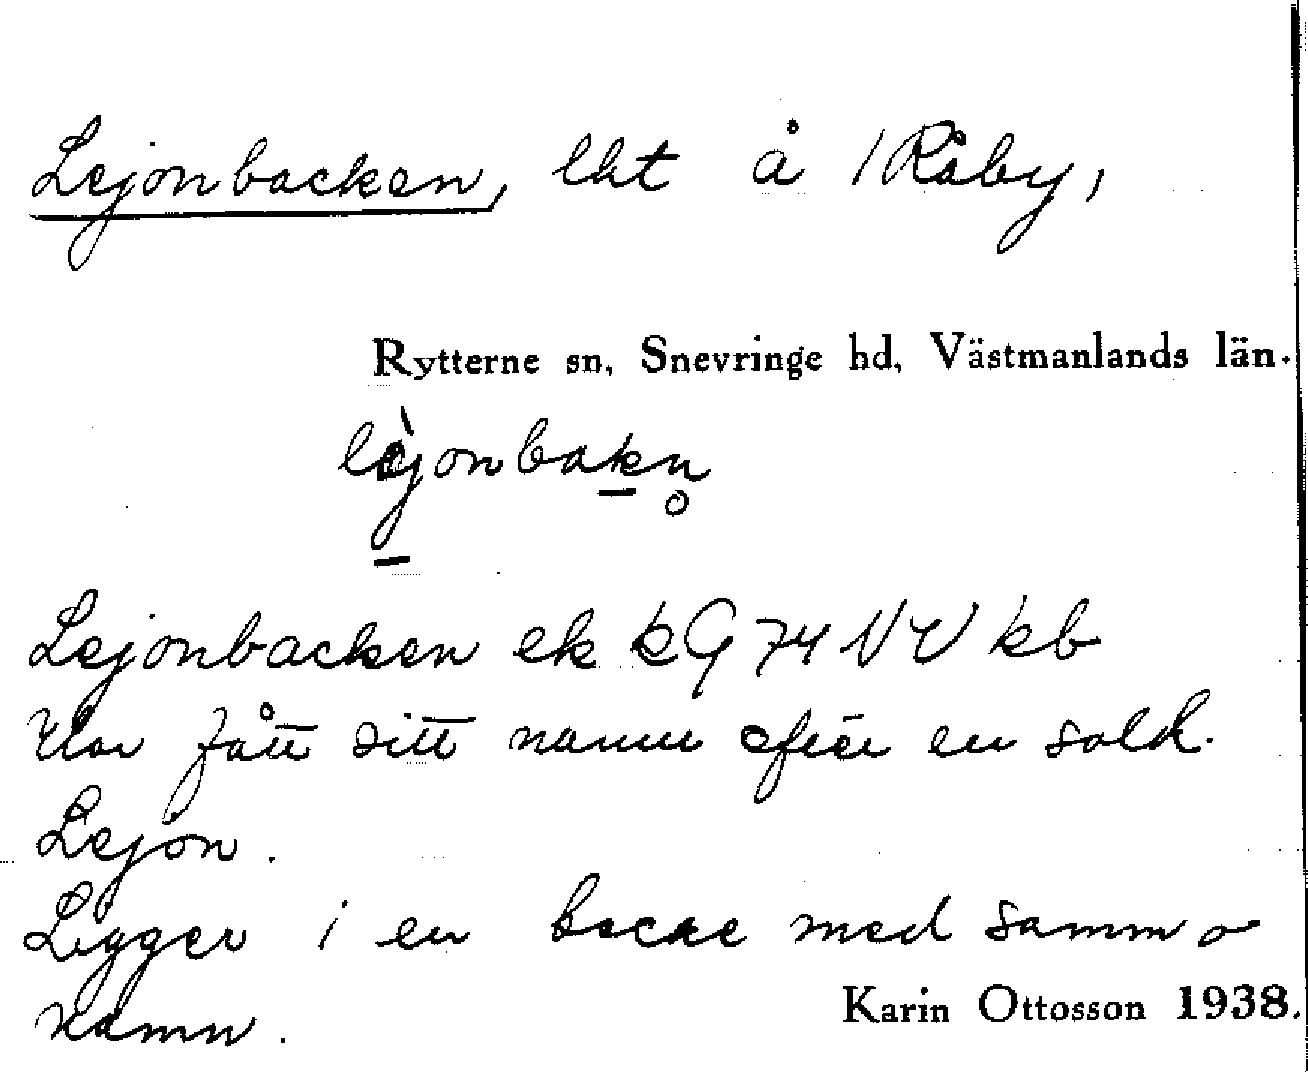 Lejonbacken, lht å 1 Råby,
Rytterne sn, Snevringe hd, Västmanlands län.
lèjonbakn̥
Lejonbacken ek kG 74 NV kb
Har fått sitt namn efter en sold.
Lejon.
Ligger i en backe med samma
namn.
Karin Ottosson 1938.